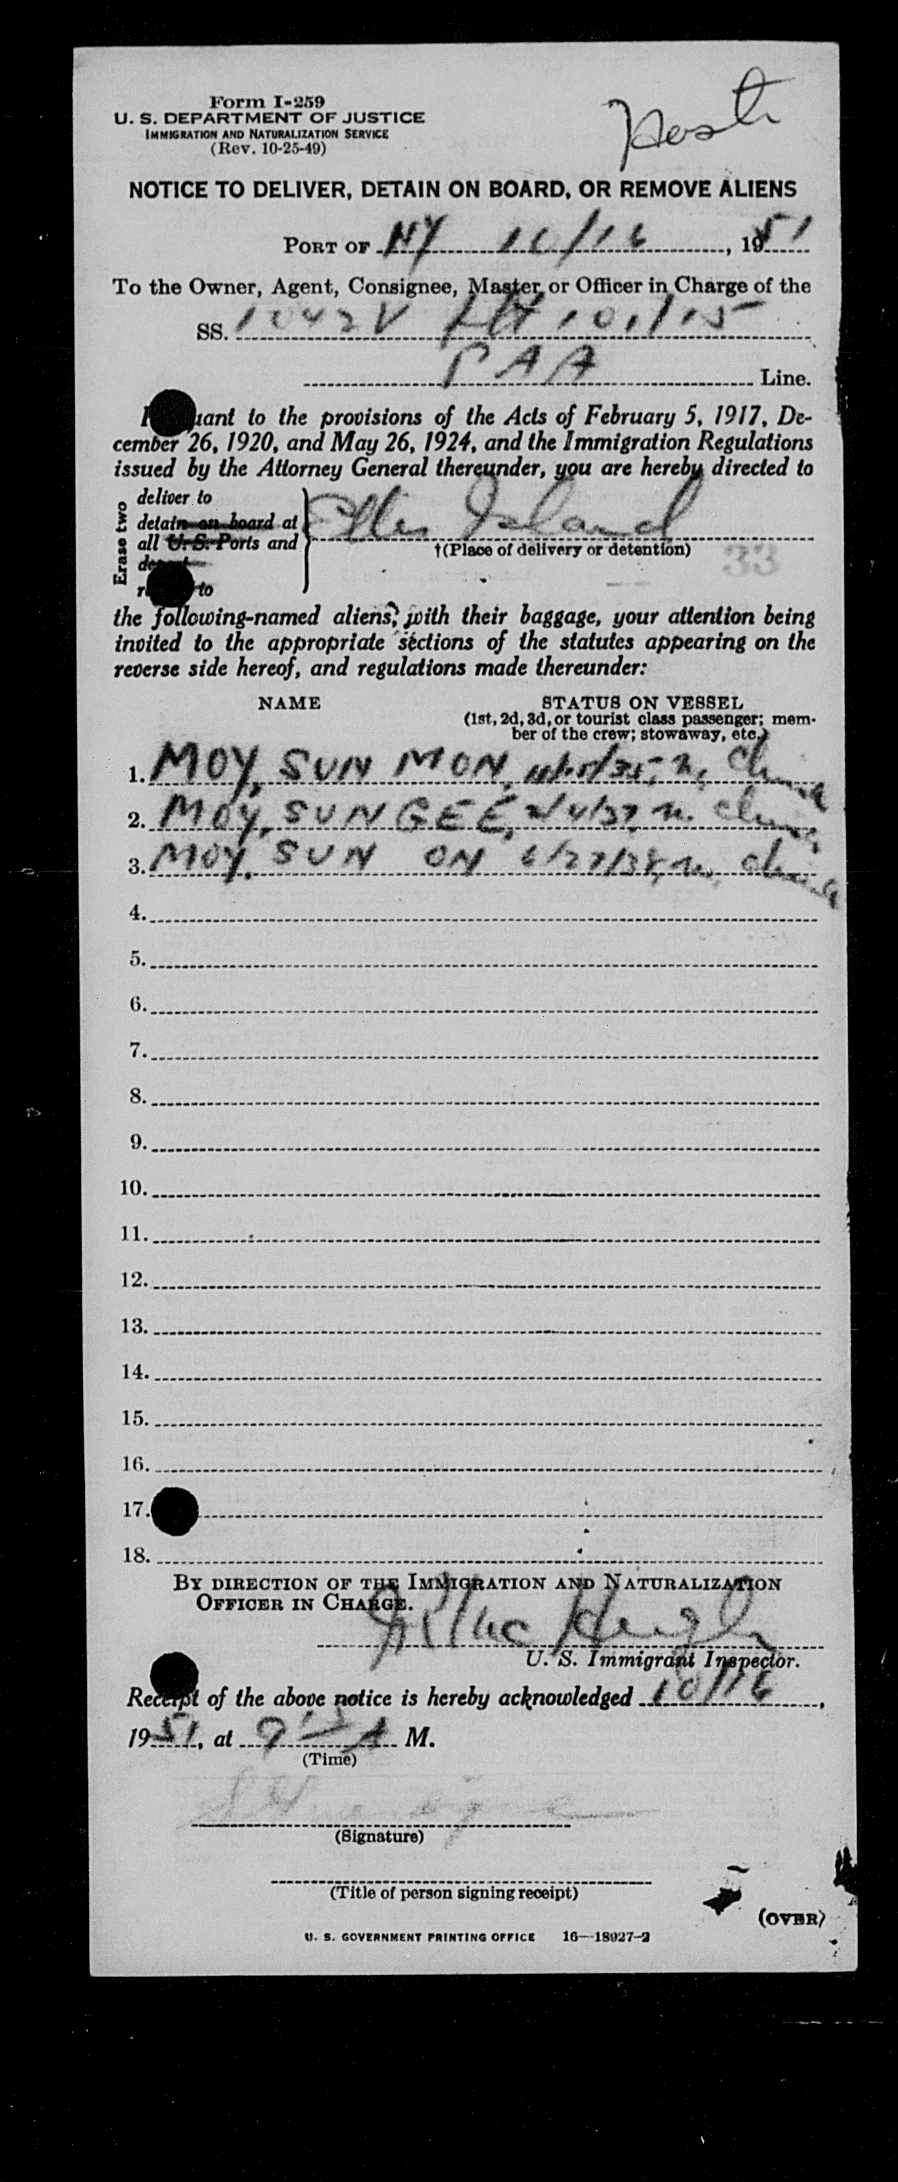 Form I-259
U. S. DEPARTMENT OF JUSTICE
IMMIGRATION AND NATURALIZATION SERVICE
(Rev. 10-25-49)
NOTICE TO DELIVER, DETAIN ON BOARD, OR REMOVE ALIENS
PORT OF NY 10/16, 1951
To the Owner, Agent, Consignee, Master, or Officer in Charge of the
SS. 1042V
PAA Line.
to the provisions of the Acts of February 5, 1917, De-
cember 26, 1920, and May 26, 1924, and the Immigration Regulations
issued by the Attorney General thereunder, you are hereby directed to
Erase two
deliver to
detain on board at
all U. S. Ports and
to
Ellis Island
†(Place of delivery or detention)
33
the following-named aliens, with their baggage, your attention being
invited to the appropriate sections of the statutes appearing on the
reverse side hereof, and regulations made thereunder:
NAME STATUS ON VESSEL
(1st, 2d, 3d, or tourist class passenger; mem-
ber of the crew; stowaway, etc.)
1. MOY, SUN MON, China
2. MOY, SUN GEE, 2/4/37, m. China
3. MOY, SUN ON 6/27/38, m, China
4.
5.
6.
7.
8.
9.
10.
11.
12.
13.
14.
15.
16.
17.
18.
BY DIRECTION OF THE IMMIGRATION AND NATURALIZATION
OFFICER IN CHARGE.
U. S. Immigrant Inspector.
Receipt of the above notice is hereby acknowledged 10/16,
1951, at A M.
(Time)
(Signature)
(Title of person signing receipt)
(OVER)
U. S. GOVERNMENT PRINTING OFFICE 16—18927-2